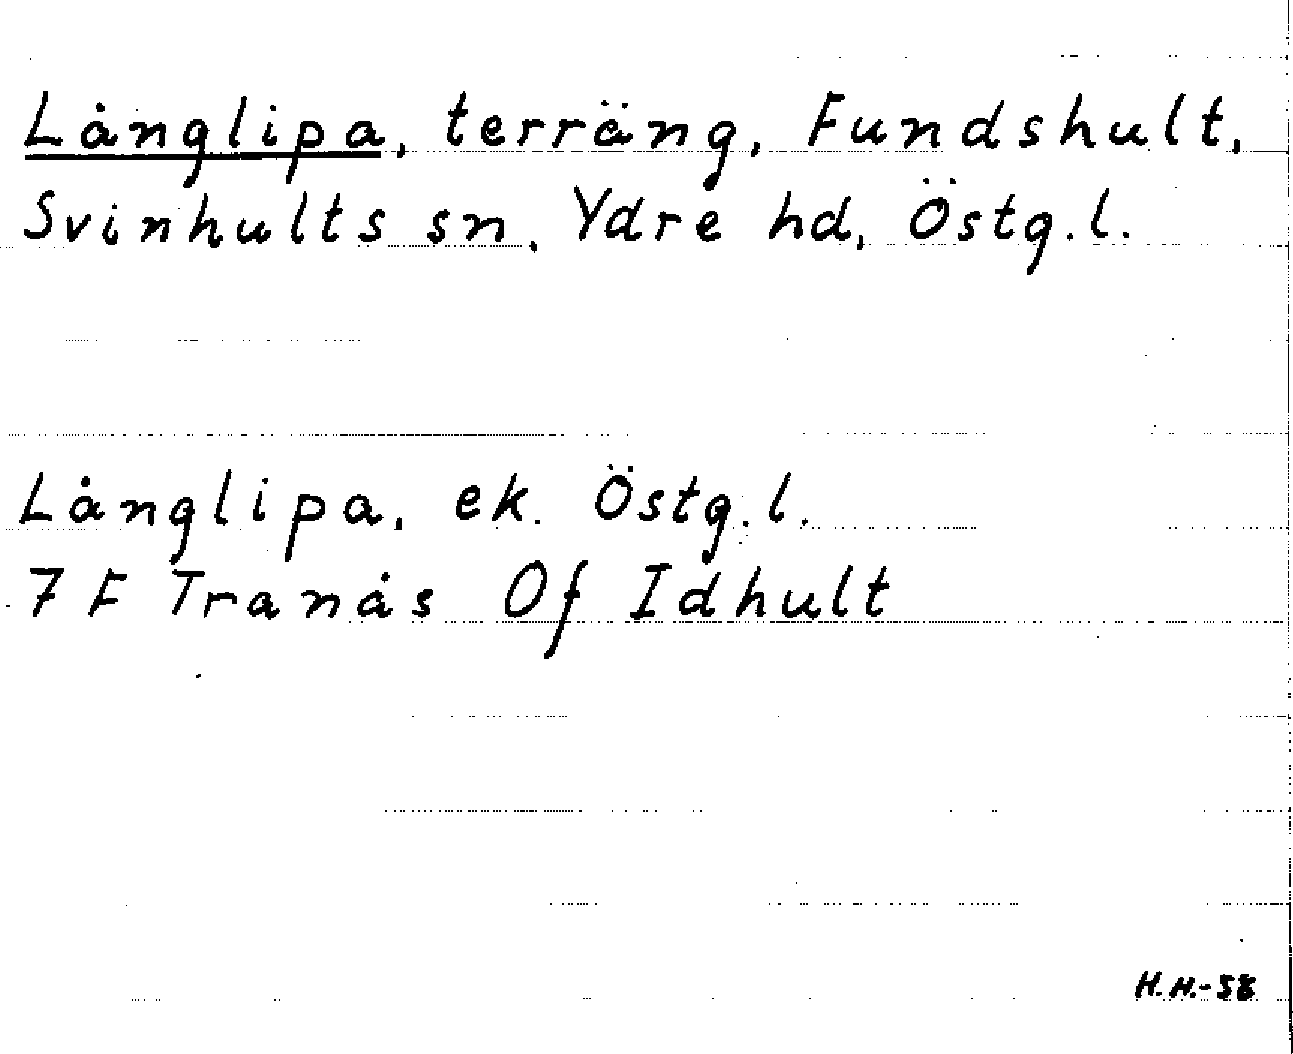 Långlipa, terräng, Fundshult,
Svinhults sn, Ydre hd, Östg.l.
Långlipa, ek. Östg.l.
7 F Tranås Of Idhult
H.H.-58